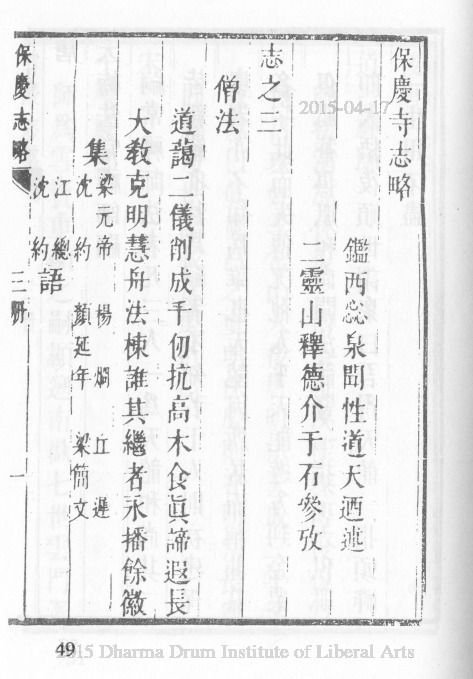 保慶寺志略
鑑西惢泉聞性道天迺述
二靈山釋德介于石參攷
志之三
僧法
道藹二儀削成千仞抗高木食眞諦遐長
大教克明慧舟法棟誰其繼者永播餘徽
集 梁元帝 楊炯 丘遲
沈約 顏延年 梁簡文
江總 語
沈約
保慶志略
三 一
2015-04-17
49
2015 Dharma Drum Institute of Liberal Arts